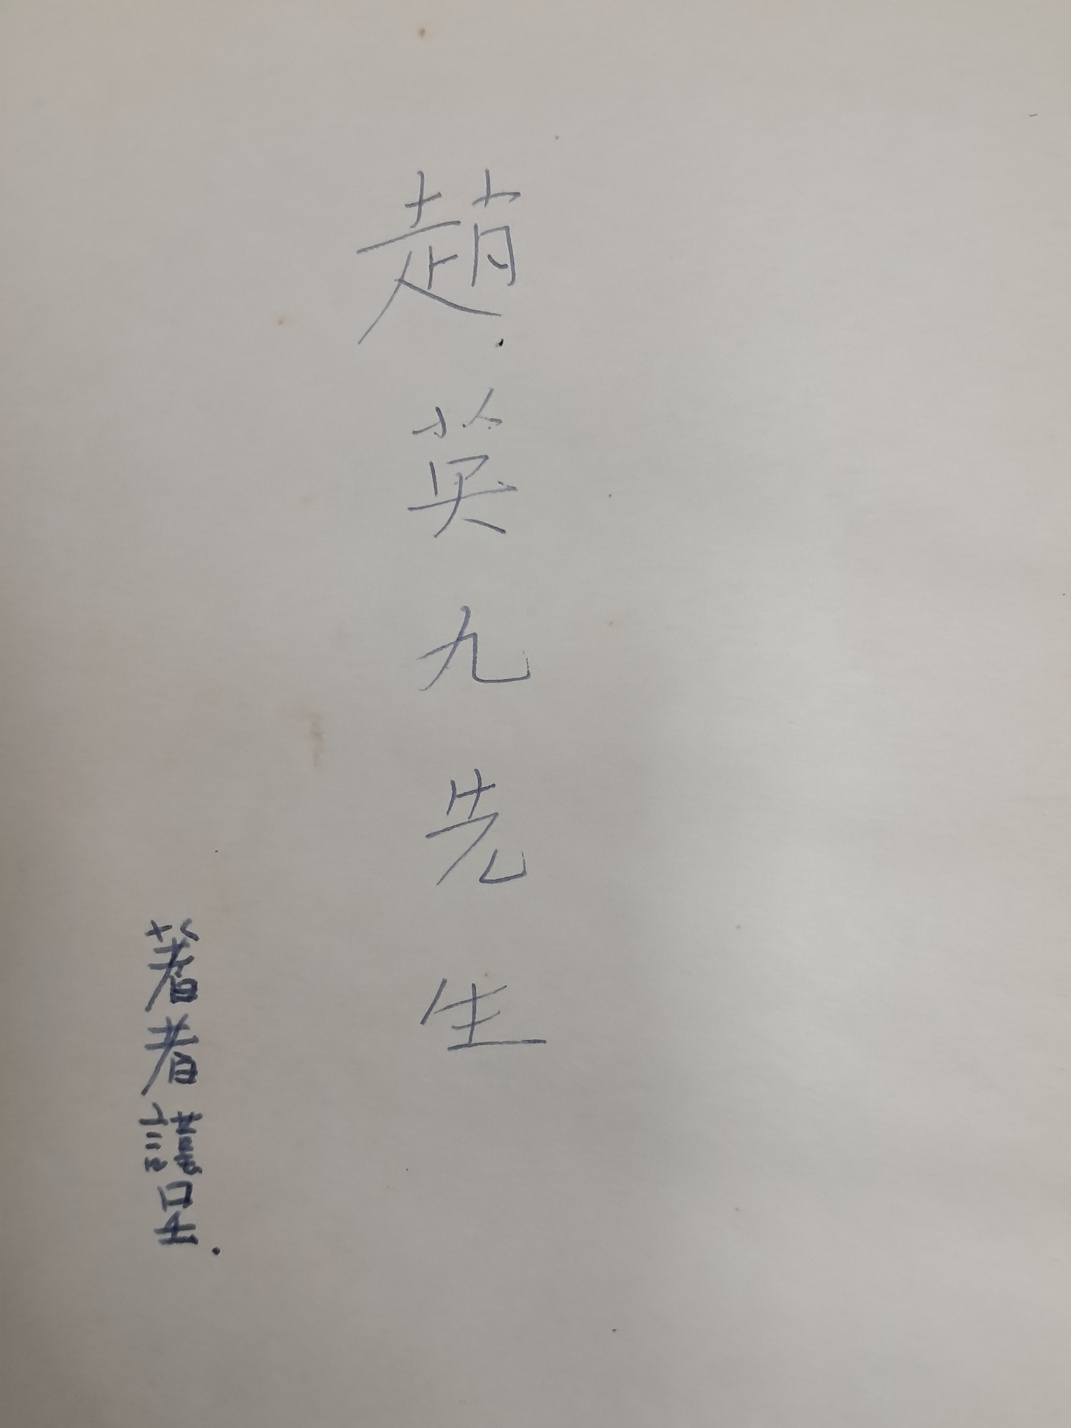 趙英九先生
著者謹呈.